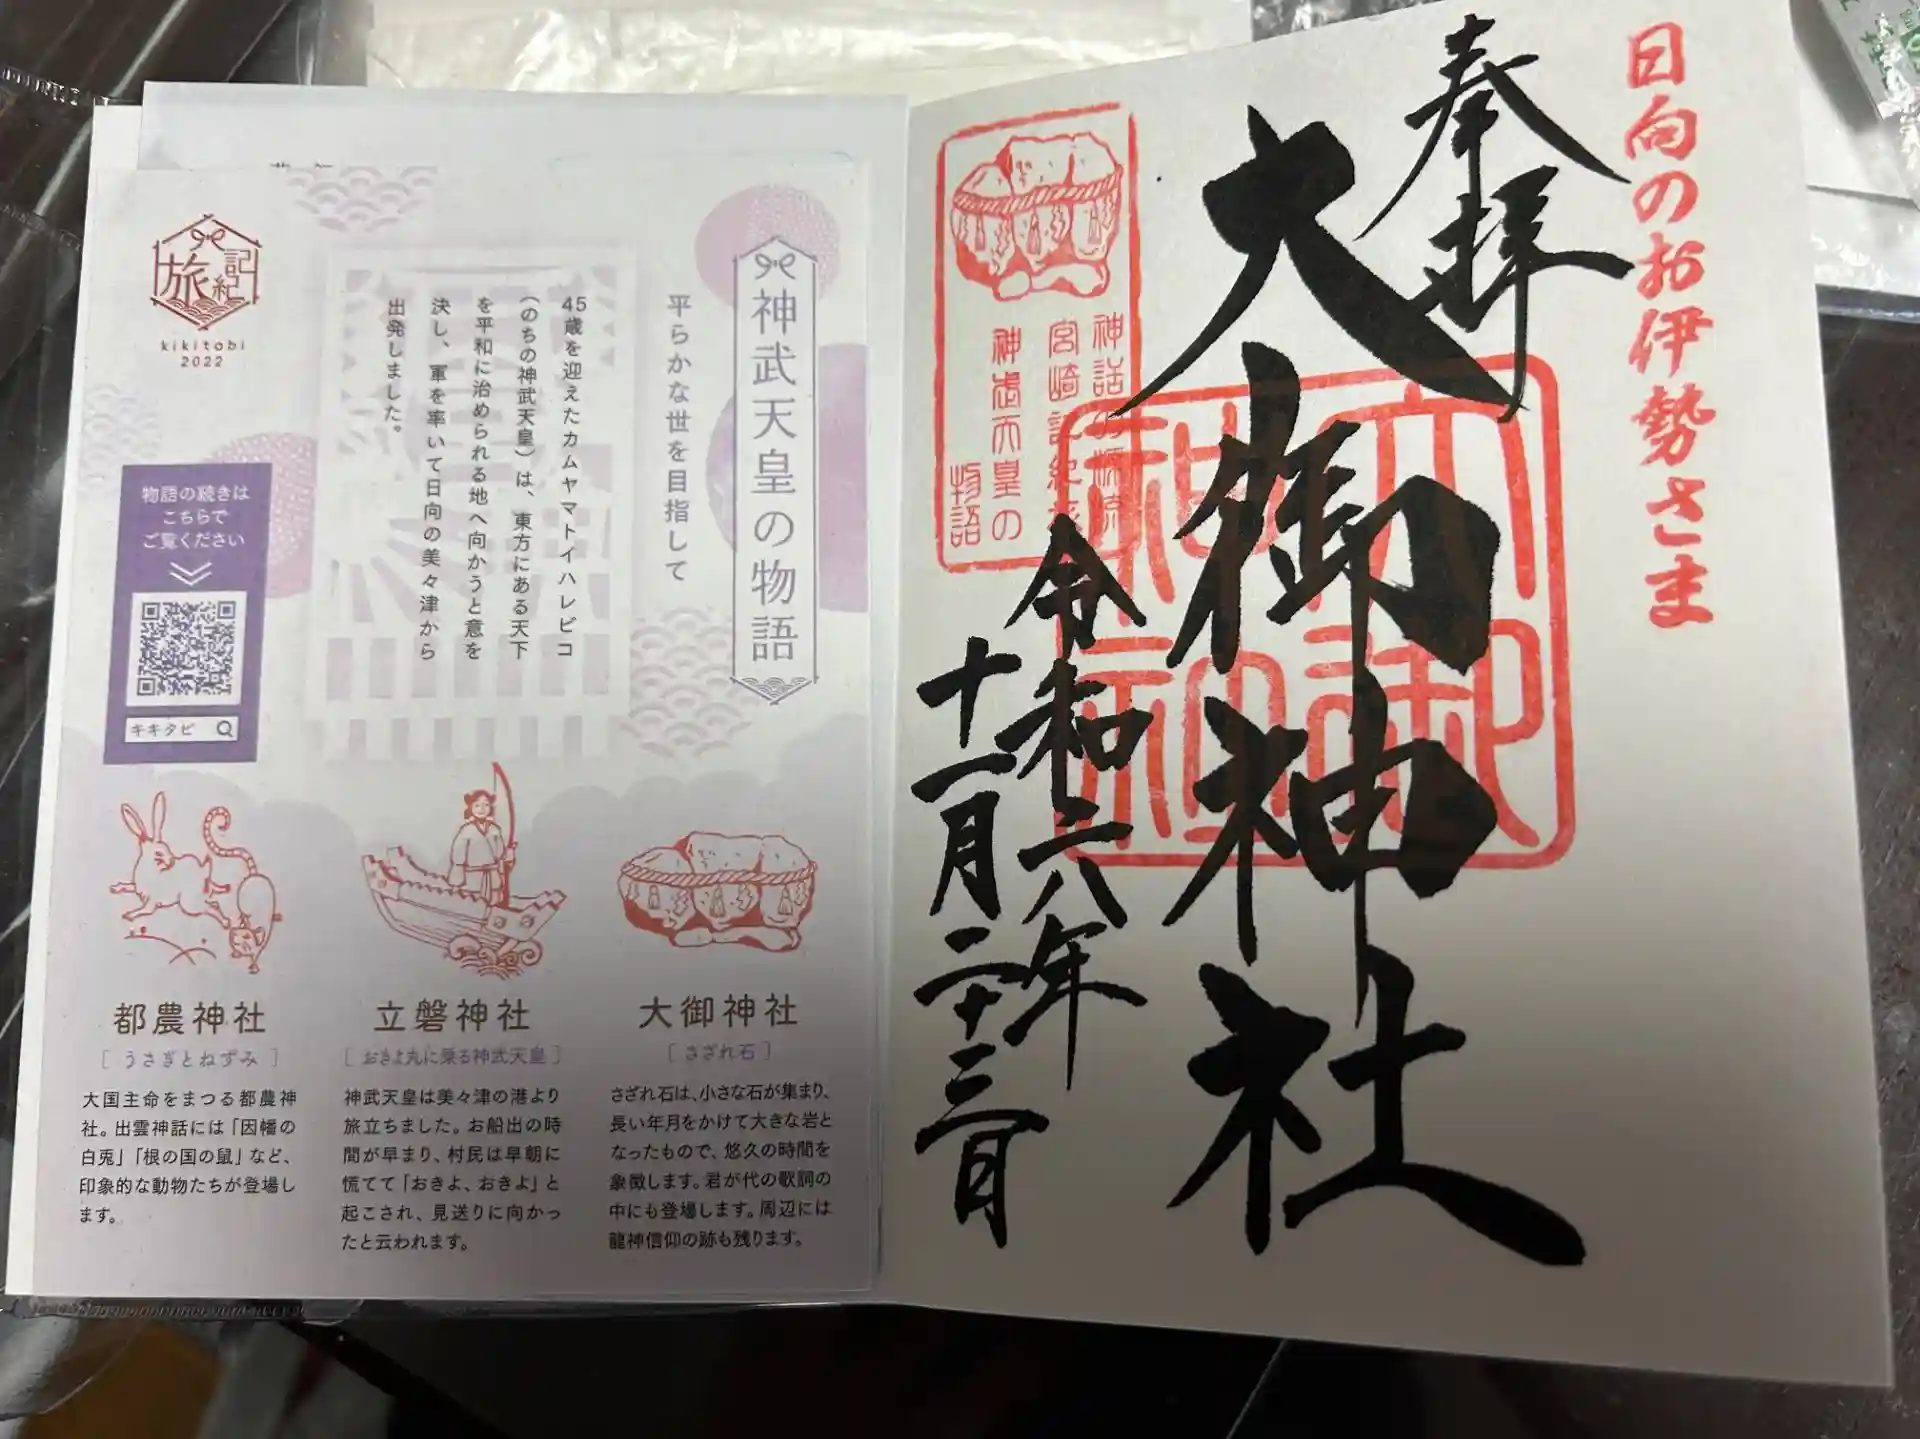 日向のお伊勢さま
奉拝
大御神社
大御
神社
令和六年
十一月二十三日
神話の源流
神武天皇の
物語
神武天皇の物語
平らかな世を目指して
45歳を迎えたカムヤマトイハレビコ
（のちの神武天皇）は、東方にある天下
を平和に治められる地へ向かうと意を
決し、軍を率いて日向の美々津から
出発しました。
記紀
旅
kikitabi
2022
物語の続きは
こちらで
ご覧ください
キキタビ
大御神社
［さざれ石］
さざれ石は、小さな石が集まり、
長い年月をかけて大きな岩と
なったもので、悠久の時間を
象徴します。君が代の歌詞の
中にも登場します。周辺には
龍神信仰の跡も残ります。
立磐神社
［おきよ丸に乗る神武天皇］
神武天皇は美々津の港より
旅立ちました。お船出の時
間が早まり、村民は早朝に
慌てて「おきよ、おきよ」と
起こされ、見送りに向かっ
たと云われます。
都農神社
［うさぎとねずみ］
大国主命をまつる都農神
社。出雲神話には「因幡の
白兎」「根の国の鼠」など、
印象的な動物たちが登場し
ます。